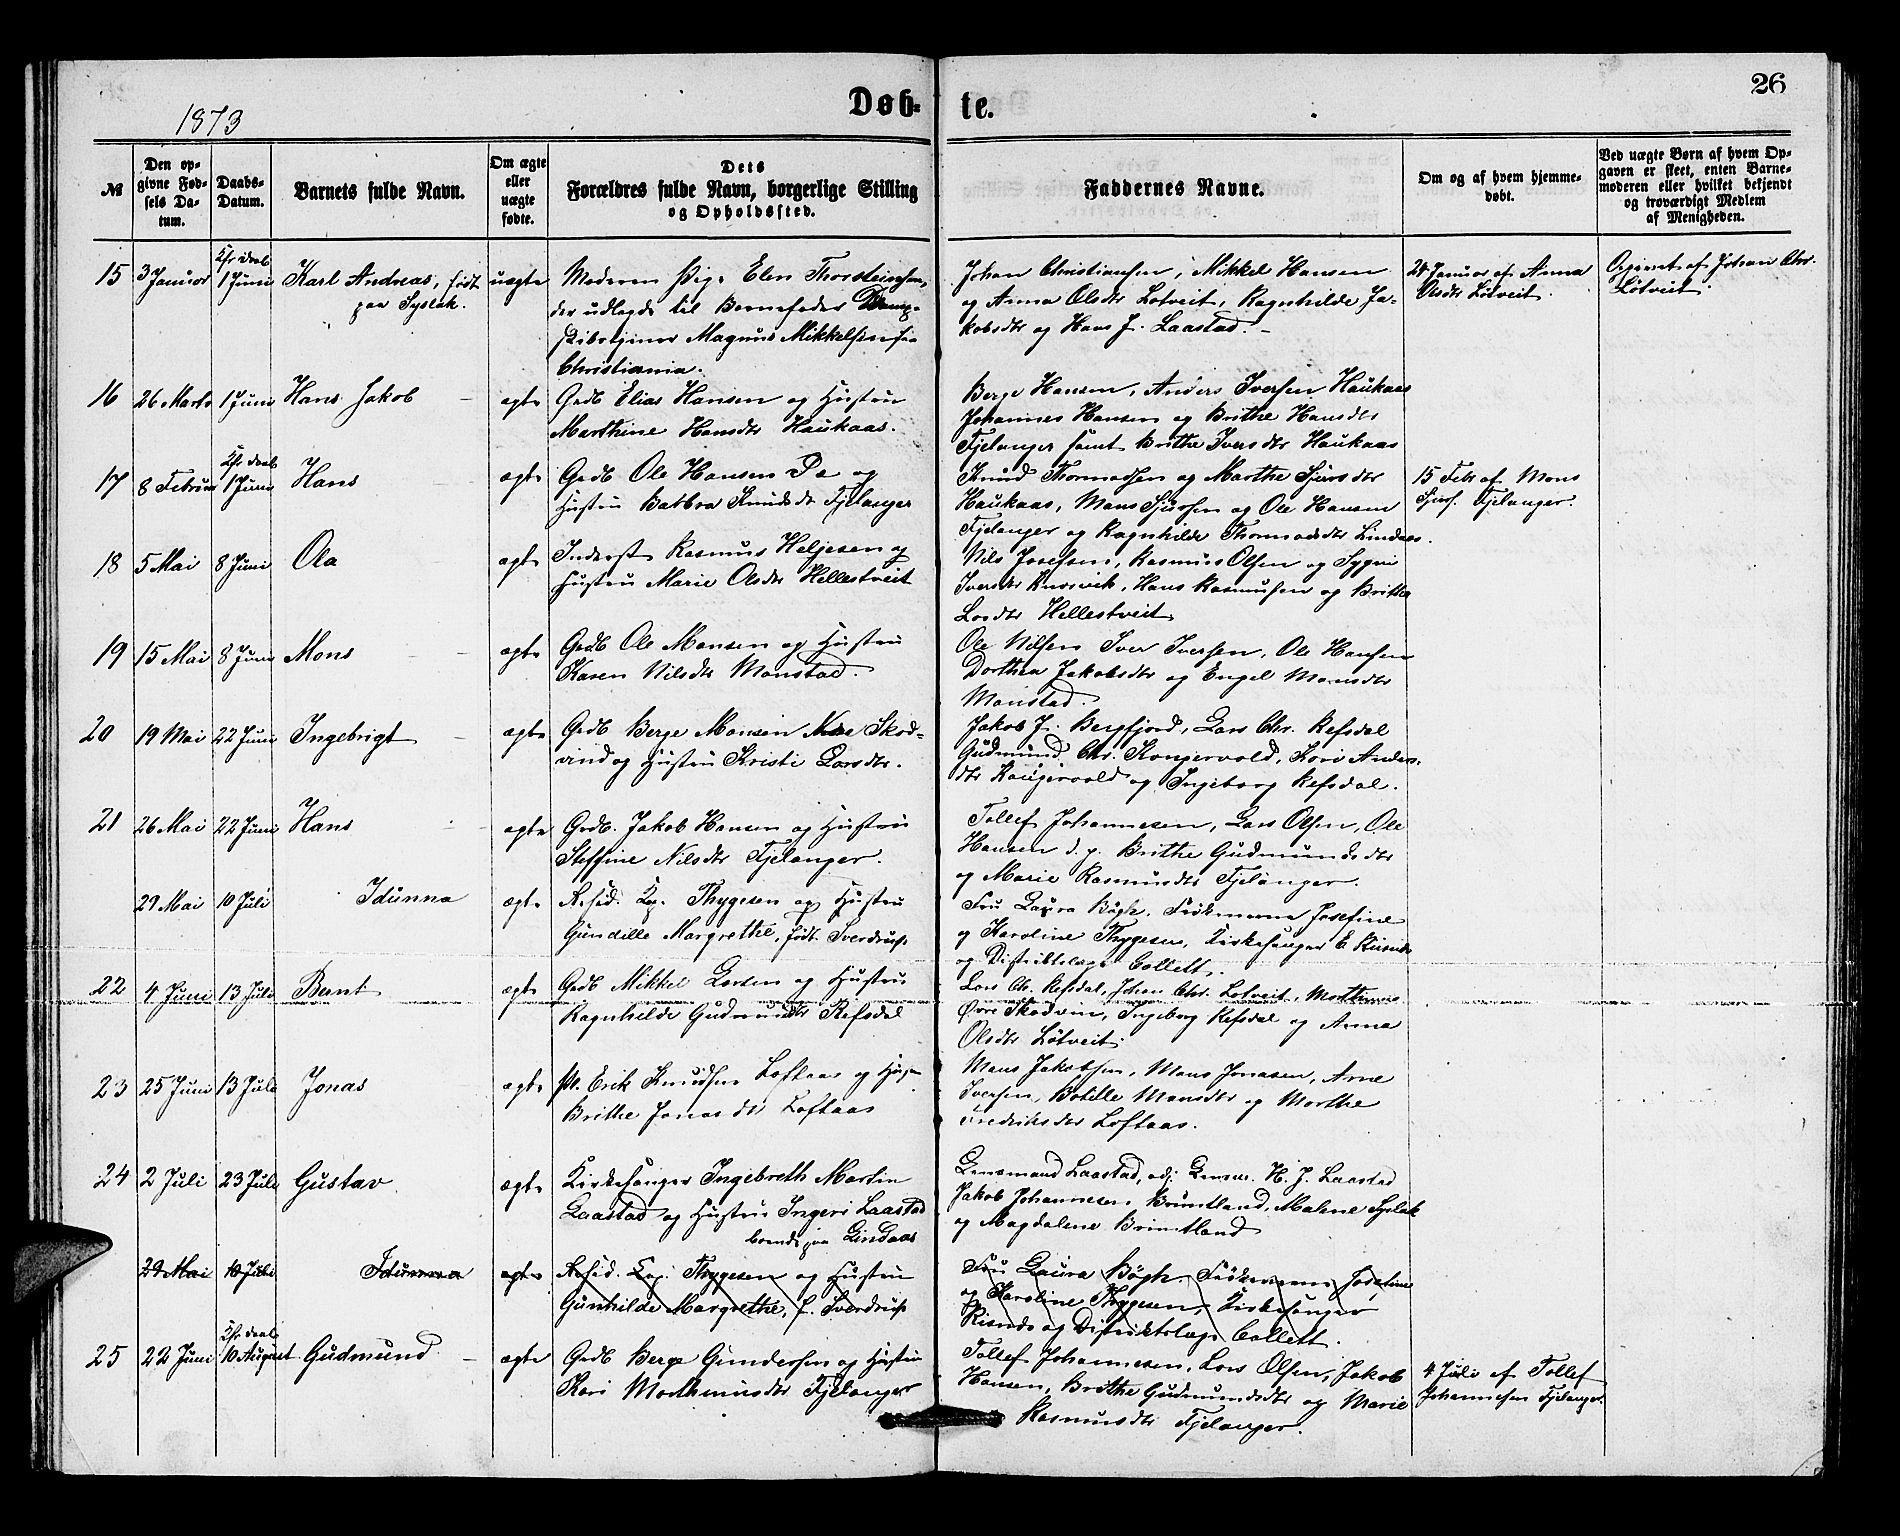 26
1873
Døb-
te.
№
Den op-
givne Fød-
sels Da-
tum.
Daabs-
Datum.
Barnets fulde Navn.
Om ægte
eller
uægte
fødte.
Dets
Forældres fulde Navn, borgerlige Stilling
og Opholdssted.
Faddernes Navne.
Om og af hvem hjemme-
døbt.
Ved uægte Børn af hvem Op-
gaven er skeet, enten Barne-
moderen eller hvilket bekjendt
og troværdigt Medlem
af Menigheden.
15 3 Januar 1 Juni Karl Andreas, født
paa Syslak.
uægte
Moderen Pige Elen Thorsteinsen,
der udlagde til Barnefader
Magnus Mikkelsen fra
Christiania.
Johan Christiansen, Mikkel Hansen
og Anna Olsdtr Løtveit, Ragnhilde Ja-
kobsdtr og Hans J. Laastad.
Januar af Anna
Olsdtr Løtveit
Opgivet af Johan Chr.
Løtveit
16 26 Marts 1 Juni Hans Jakob
ægte
Grdb Elias Hansen og Hustru
Marthine Hansdtr Haukaas.
Berge Hansen, Anders Iversen Haukaas
Johannes Hansen og Brithe Hansdtr
Fjelanger samt Brithe Iversdtr Haukaas
17 8 Februar 1 Juni Hans
ægte
Grdb Ole Hansen og
Hustru Barbra Knudsdtr Fjelanger
Knud Thormodsen og Marthe Sjursdtr
Haukaas, Mons Sjursen og Ole Hansen
Fjelanger og Ragnhilde Thormodsdtr Lindaas.
15 Febr af Mons
Sjurs. Fjelanger.
18 5 Mai 8 Juni Ola
ægte
Inderst Rasmus Heljesen og
Hustru Marie Olsdtr Hellestveit
Nils Josefsen, Rasmus Olsen og Sygni
Iversdtr, Hans Rasmusen og Brithe
Larsdtr Hellestveit
19 15 Mai 8 Juni Mons
ægte
Grdb Ole Monsen og Hustru
Karen Nilsdtr Monstad.
Ole Nilsen Iver Iversen, Ole Hansen
Dorthea Jakobsdtr og Engel Monsdtr
Monstad.
20 19 Mai 22 Juni Ingebrigt
ægte
Grdb Berge Monsen Ndre Skod-
vind og Hustru Kristi Larsdtr.
Jakob J. Bergfjord, Lars Chr. Refsdal
Gudmund Chr. Kongervold, Kari Anders-
dtr Kongervold og Ingeborg Refsdal.
21 26 Mai 22 Juni Hans
ægte
Grdb. Jakob Hansen og Hustru
Steffine Nilsdtr Fjelanger.
Tollef Johannesen, Lars Olsen, Ole
Hansen d. y. Brithe Gudmundsdtr
og Marie Rasmusdtr Fjelanger.
29 Mai 10 Juli Idunna
ægte
Resid. Kap. Thygesen og Hustru
Gunilde Margrethe, født Sverdrup
Fru Laura Bögh, Frökenerne Josefine
og Karoline Thygesen, Kirkesanger E. Risnes
og Distriktslæge Collett.
22 4 Juni 13 Juli Bernt
ægte
Grdb Mikkel Larsen og Hustru
Ragnhilde Gudmundsdtr Refsdal
Lars Ch. Refsdal, Johan Chr. Løtveit,
Øvre Skodvin, Ingeborg Refsdal og Anna
Olsdtr Løtveit.
23 25 Juni 13 Juli Jonas
ægte
Pl. Erik Knudsen Loftaas og Hustru
Brithe Jonasdtr Loftaas
Mons Jakobsen, Mons Jonasen, Arne
Iversen, Botille Monsdtr og Marthe
Fredriksdtr Loftaas.
24 2 Juli 23 Juli Gustav
ægte
Kirkesanger Ingebreth Martin
Laastad og Hustru Ingeri Laastad
boende paa Lindaas
Lensmand Laastad, adj. Lensm. H. J. Laastad
Jakob Johannesen Bruntland, Malene Syslak
og Magdalene Bruntland
29 Mai 10 Juli Idunna
ægte
Resid. Kap. Thygesen og Hustru
Gunhilde Margrethe, f. Sverdrup
Fru Laura Bögh. Frökenerne Josefine
og Karoline Thygesen, Kirkesanger
Risnes og Distriktslæge Collett.
25 22 Juni 10 August Gudmund
ægte
Grdb Berge Gundersen og Hustru
Kari Mathiasdtr Fjelanger
Tollef Johannesen, Lars Olsen, Jakob
Hansen, Brithe Gudmundsdtr og Marie
Rasmusdtr Fjelanger.
4 Juli af Tollef
Johannesen Fjelanger.